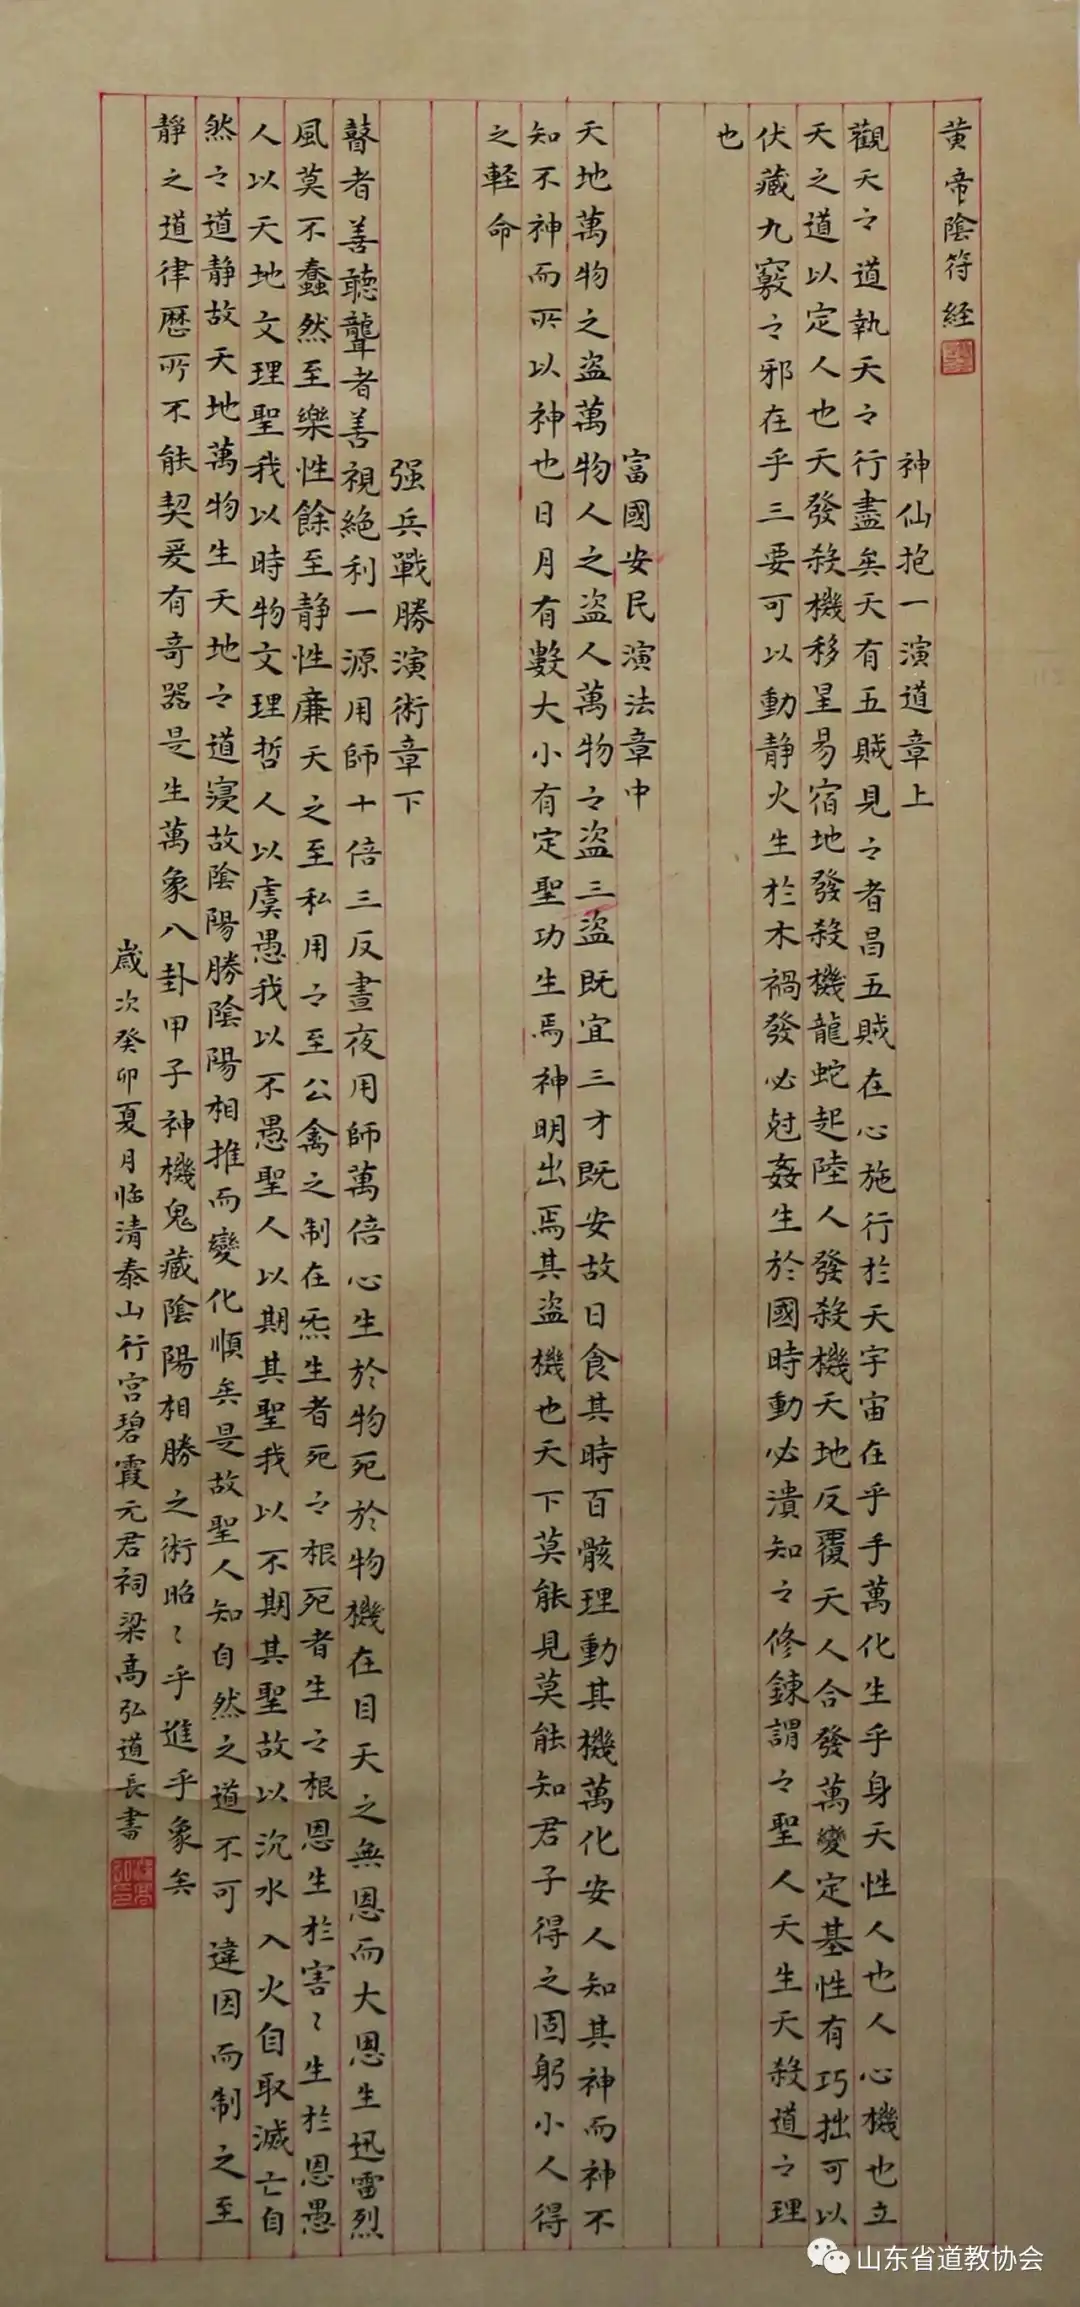 黄帝陰符経
神仙抱一演道章上
觀天之道執天之行盡矣天有五賊見之者昌五賊在心施行於天宇宙在乎手萬化生乎身天性人也人心機也立
天之道以定人也天發殺機移星易宿地發殺機龍蛇起陸人發殺機天地反覆天人合發萬變定基性有巧拙可以
伏藏九竅之邪在乎三要可以動静火生於木禍發必尅姦生於國時動必潰知之修鍊謂之聖人天生天殺道之理
也
富國安民演法章中
天地萬物之盗萬物人之盗人萬物之盗三盗既宜三才既安故曰食其時百骸理動其機萬化安人知其神而神不
知不神而所以神也日月有數大小有定聖功生焉神明出焉其盗機也天下莫能見莫能知君子得之固躬小人得
之輕命
强兵戰勝演術章下
瞽者善聽聾者善視絶利一源用師十倍三反晝夜用師萬倍心生於物死於物機在目天之無恩而大恩生迅雷烈
風莫不蠢然至樂性餘至静性廉天之至私用之至公禽之制在炁生者死之根死者生之根恩生於害〻生於恩愚
人以天地文理聖我以時物文理哲人以虞愚我以不愚聖人以期其聖我以不期其聖故以沉水入火自取滅亡自
然之道静故天地萬物生天地之道寖故陰陽勝陰陽相推而變化順矣是故聖人知自然之道不可違因而制之至
静之道律曆所不能契爰有奇器是生萬象八卦甲子神機鬼藏陰陽相勝之術昭〻乎進乎象矣
歲次癸卯夏月临清泰山行宫碧霞元君祠梁高弘道長書
山东省道教协会